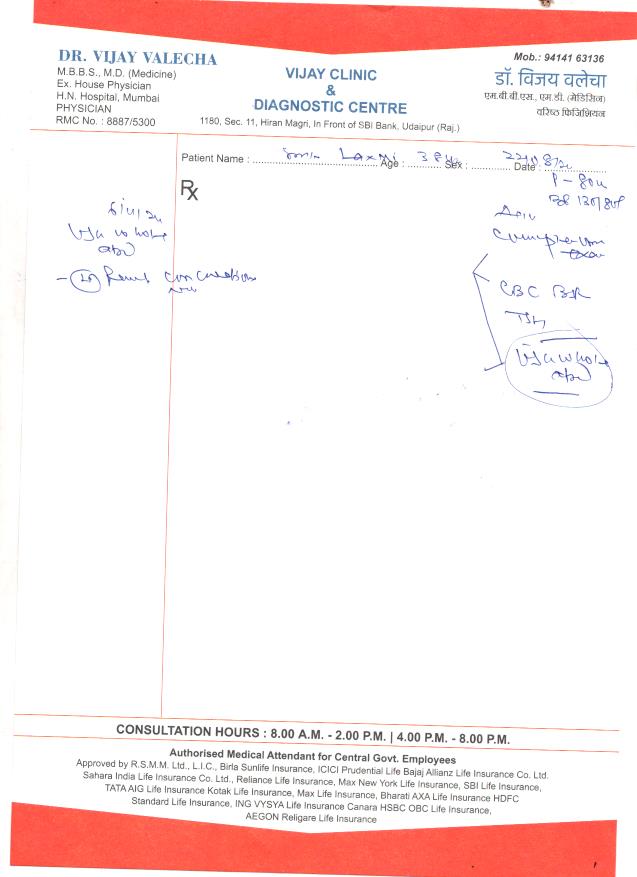 DR. VIJAY VALECHA
M.B.B.S., M.D. (Medicine)
Ex. House Physician
H.N. Hospital, Mumbai
PHYSICIAN
RMC No. : 8887/5300
VIJAY CLINIC
&
DIAGNOSTIC CENTRE
1180, Sec. 11, Hiran Magri, In Front of SBI Bank, Udaipur (Raj.)
Mob.: 94141 63136
डॉ. विजय वलेचा
एम.बी.बी.एस., एम.डी. (मेडिसिन)
वरिष्ठ फिजिशियन
Patient Name : Laxmi Age : 38 Sex : Date :
P - 80
130/80
Rx
CBC
TSH
CONSULTATION HOURS : 8.00 A.M. - 2.00 P.M. | 4.00 P.M. - 8.00 P.M.
Authorised Medical Attendant for Central Govt. Employees
Approved by R.S.M.M. Ltd., L.I.C., Birla Sunlife Insurance, ICICI Prudential Life Bajaj Allianz Life Insurance Co. Ltd.
Sahara India Life Insurance Co. Ltd., Reliance Life Insurance, Max New York Life Insurance, SBI Life Insurance,
TATA AIG Life Insurance Kotak Life Insurance, Max Life Insurance, Bharati AXA Life Insurance HDFC
Standard Life Insurance, ING VYSYA Life Insurance Canara HSBC OBC Life Insurance,
AEGON Religare Life Insurance